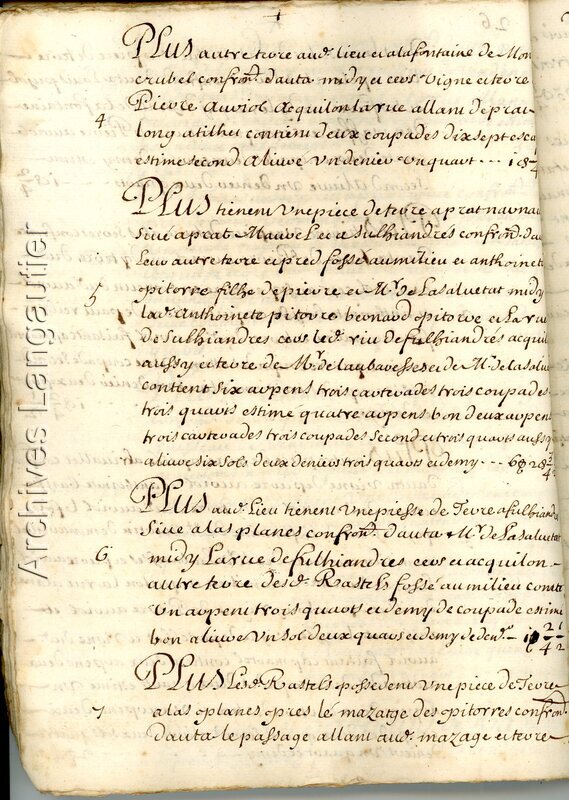 26
PLus autre terre aud. lieu et a la fontaine de Mon
crubel confron. d'auta midy et cers vigne et terre
Pierre auriol acquilon la rue allant de prat
4
long a tilhet contient deux coupades dix sept esca
estime second alivre un denier un quart - - - 1 d 1/4
PLus tienent une piece de terre a prat navnau
sive a prat Mauvel et a fulhiandres confron. dau
Leur autre terre et pred fossé au milieu et anthoinete
5
pitorre filhe de pierre et Mr. de Lasaluetat midy
lad. anthoinete pitorre bernard pitorre et La rue
de fulhiandres cers led. riu de fulhiandrés acquil
aussy et terre de Mr. de et de Mr. de la salue
contient six arpens trois carterades trois coupades
trois quarts estime quatre arpens bon deux arpen
trois carterades trois coupades second et trois quarts aussy
alivre six sols deux deniers trois quarts et demy - - - 6 s 2 d 3/4 1/2
PLus aud. Lieu tienent une piesse de Terre a fulhiandr
Sive a las planes confron. d'auta Mr. de Lasaluetat
6
midy La rue de fulhiandres cers et acquilon
autre terre desd. Rastels fossé au milieu conte
un arpent trois quarts et demy de coupade estimé
bon alivre un sol deux quars et demy de den. - 1 s 2/4 1/2
PLus Lesd. Rastels possedent une piece de Terre
a las planes pres le mazatge des pitorres confron.
7
d'auta le passage allant aud. mazage et terre
Archives Langautier